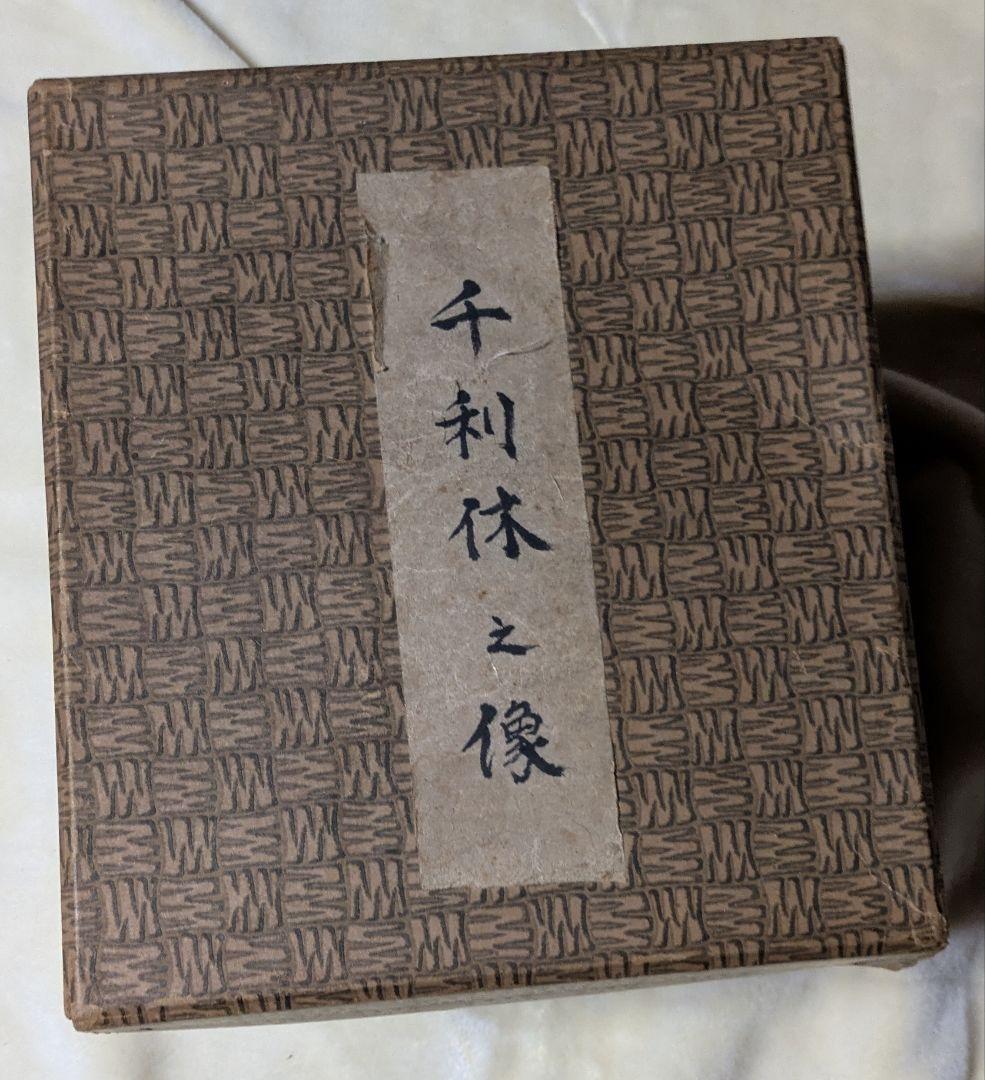 千利休之像